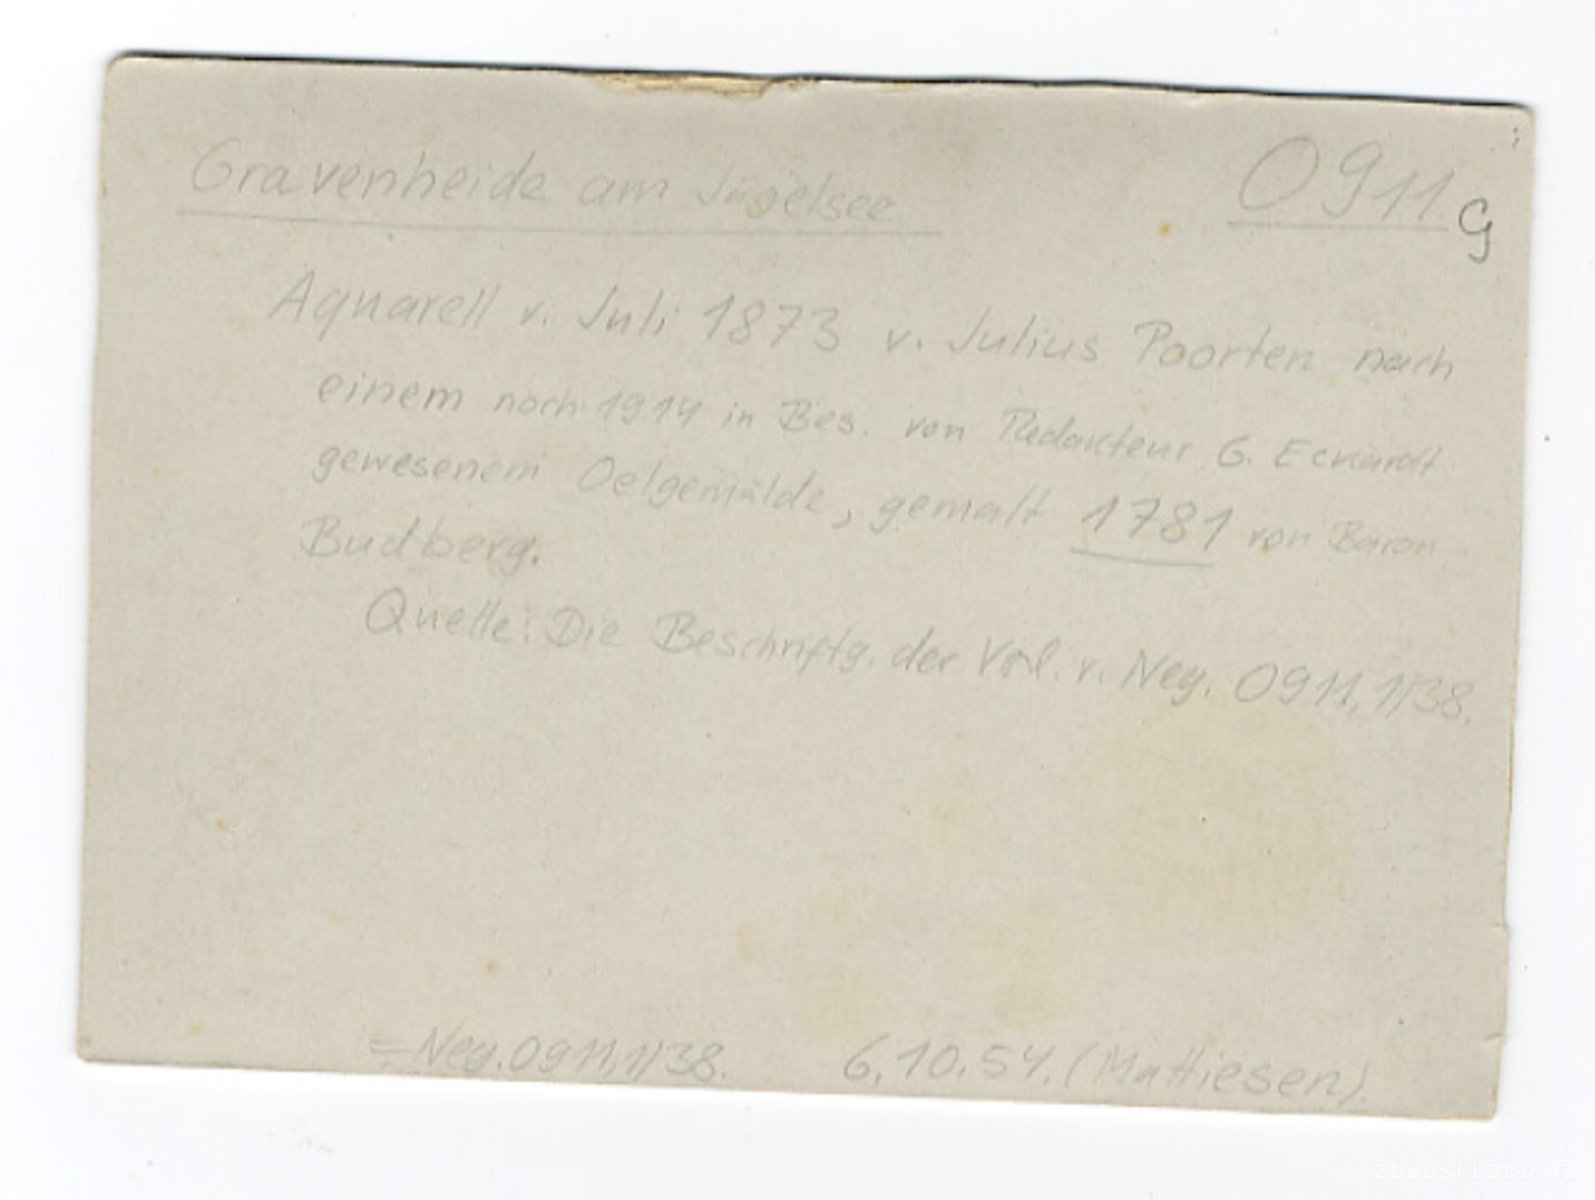 Gravenheide am Jägelsee 0911 G
Aquarell v. Juli 1873 v. Julius Poorten nach
einem noch 1914 in Bes. von Redakteur G. Eckardt
gewesenem Oelgemälde, gemalt 1781 von Baron
Budberg.
Quelle: Die Beschriftg. der Vorl. v. Neg. 0911,1/38.
= Neg. 0911,1/38. 6.10.54. (Mattiesen).
ZUDUSI LATVIJA